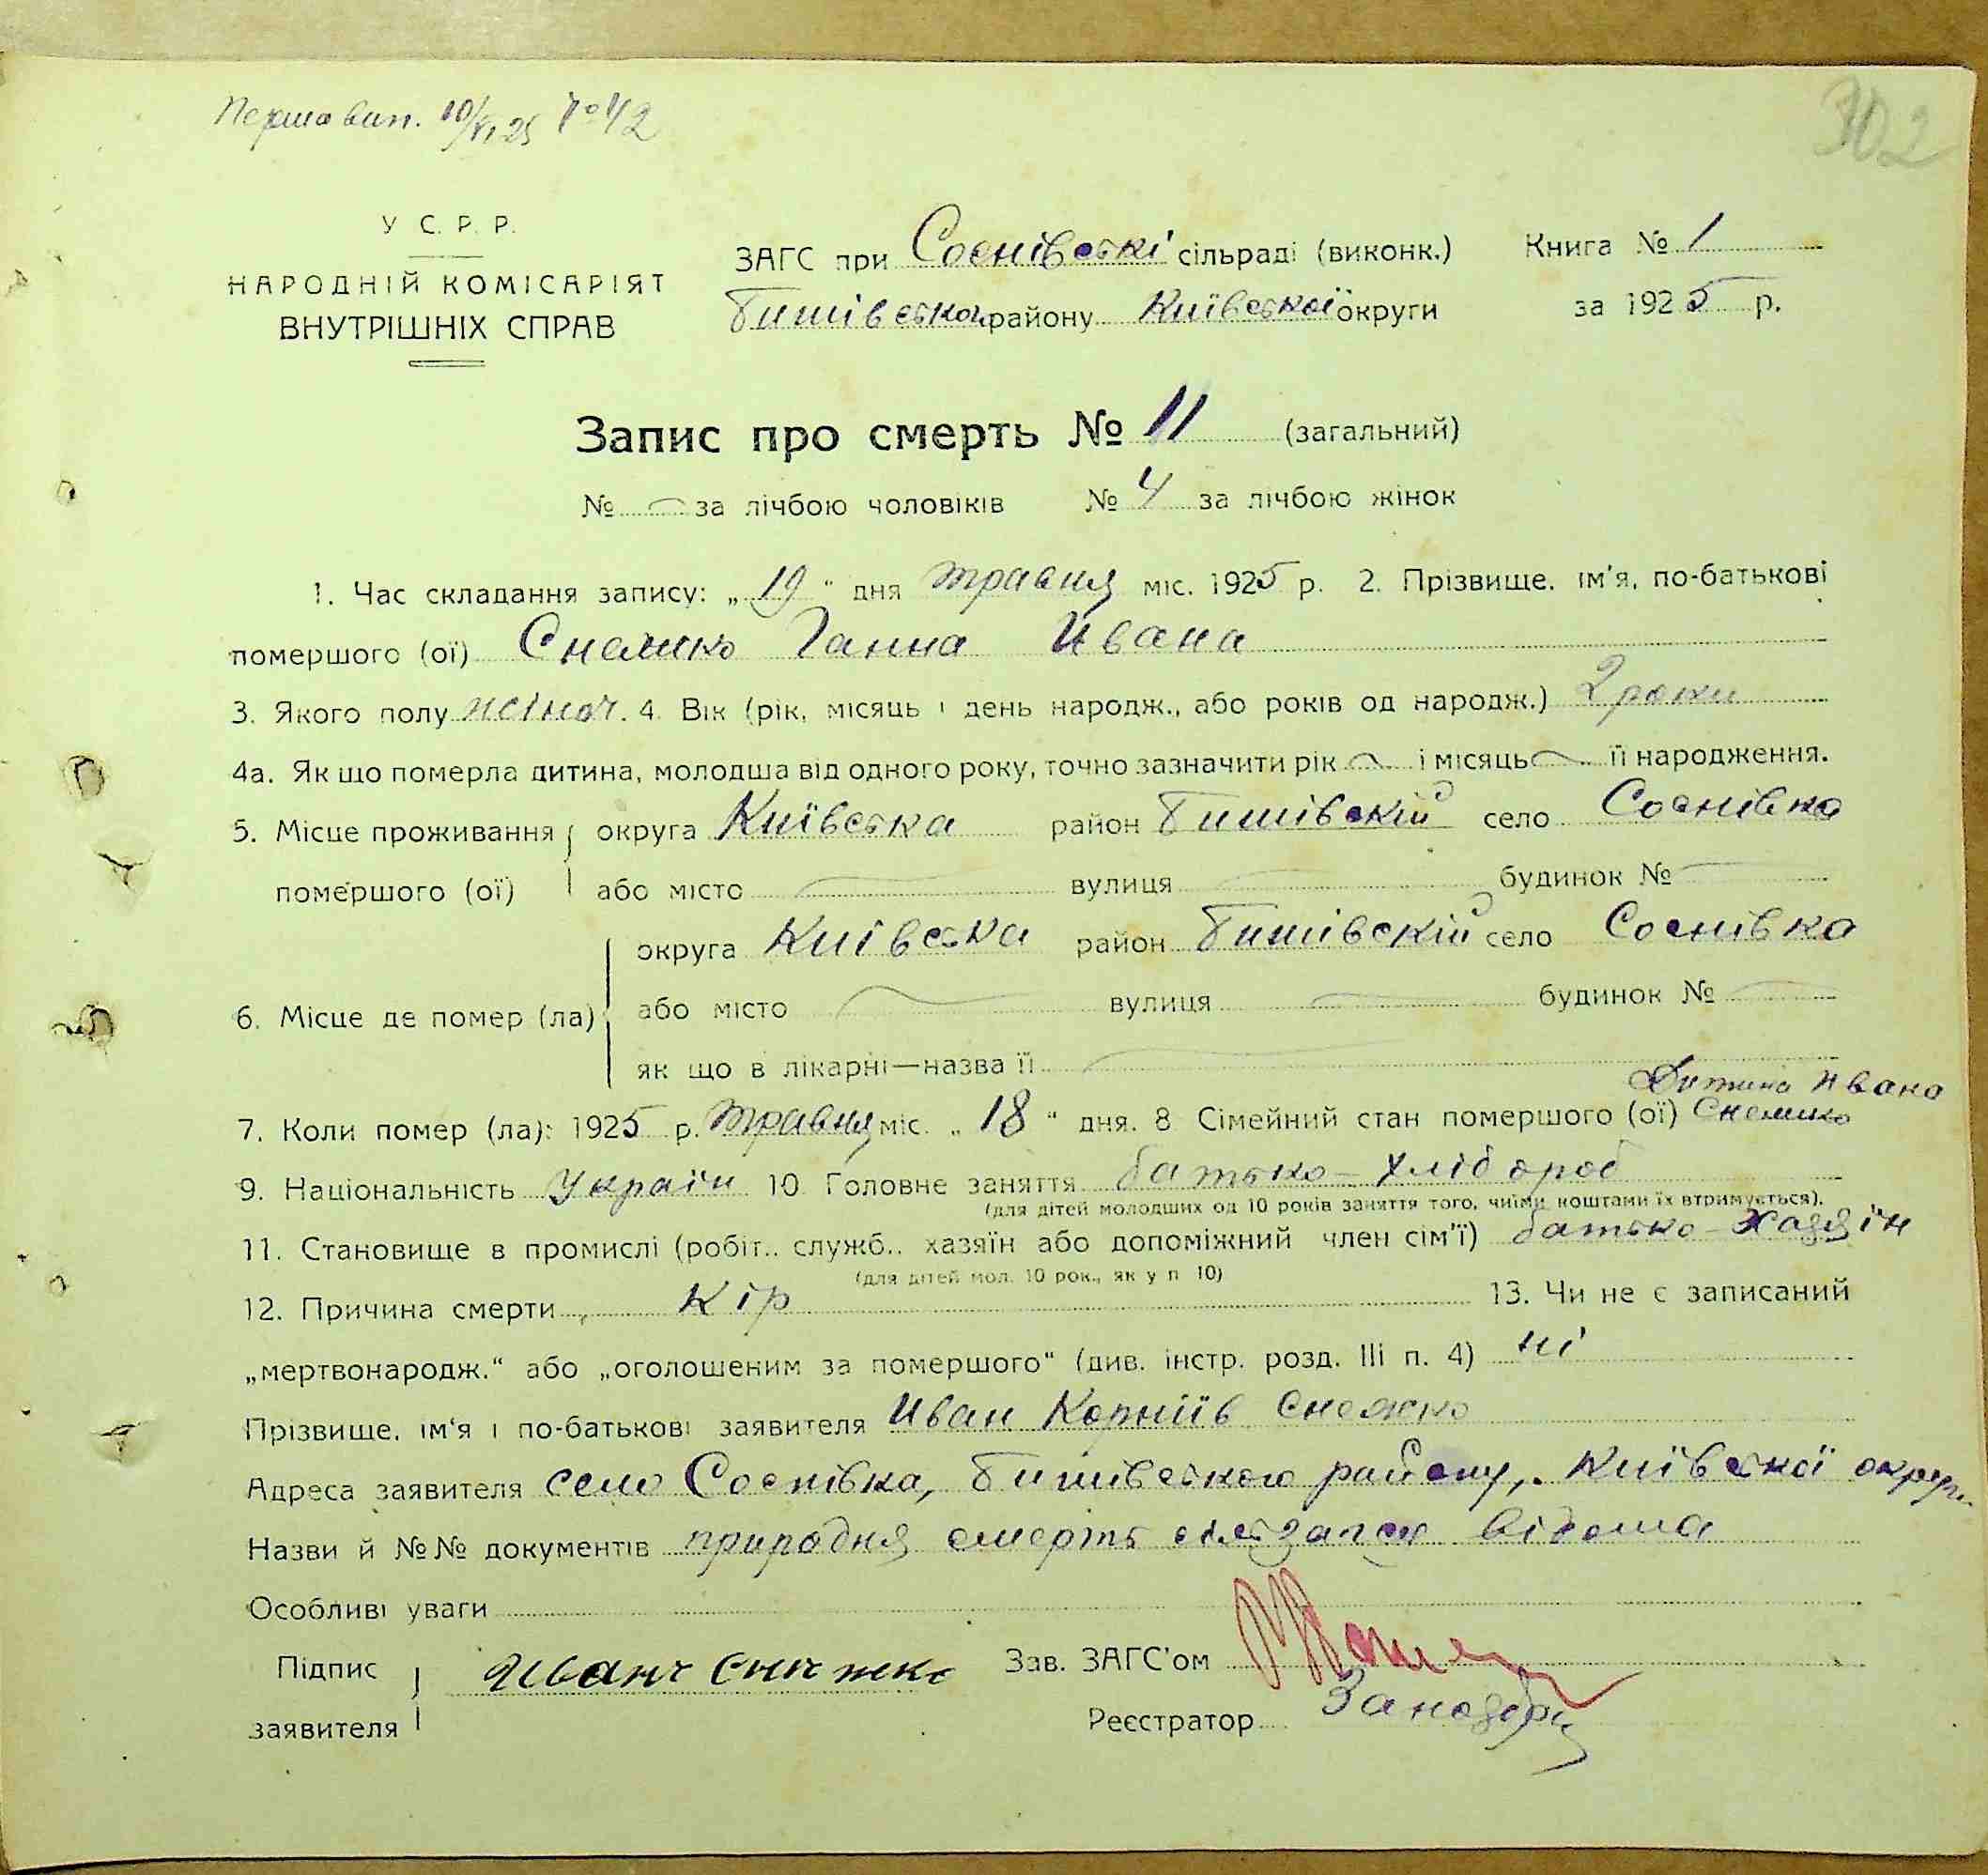 Перша вип. 10/VI 25 №42
302
У С. Р. Р.
НАРОДНІЙ КОМІСАРІЯТ
ВНУТРІШНІХ СПРАВ
ЗАГС при Соснівські сільраді (виконк.)
Бишівського району Київської округи
Книга № 1
за 1925 р.
Запис про смерть № 11 (загальний)
№ за лічбою чоловіків № 4 за лічбою жінок
1. Час складання запису: „ 19 " дня травня міс. 1925 р. 2. Прізвище, ім'я, по-батькові
помершого (ої) Снежко Ганна Ивана
3. Якого полу жіноч. 4. Вік (рік, місяць і день народж., або років од народж.) 2 роки
4а. Як що померла дитина, молодша від одного року, точно зазначити рік і місяць її народження.
5. Місце проживання округа Київська район Бишівский село Соснівка
помершого (ої) або місто вулиця будинок №
округа Київська район Бишівский село Соснівка
6. Місце де помер (ла) або місто вулиця будинок №
як що в лікарні—назва її
Дитина Ивана
7. Коли помер (ла): 1925 р. травня міс. „ 18 " дня. 8 Сімейний стан помершого (ої) Снежко
9. Національність Україн 10 Головне заняття батько - хлібороб
(для дітей молодших од 10 років заняття того, чиїми коштами їх втримується).
11. Становище в промислі (робіт.. служб.. хазяїн або допоміжний член сім'ї) батько - хазяїн
(для дітей мол. 10 рок., як у п 10)
12. Причина смерти Кір 13. Чи не є записаний
„мертвонародж." або „оголошеним за помершого" (див. інстр. розд. III п. 4) ні
Прізвище, ім'я і по-батькові заявителя Иван Корніїв Снежко
Адреса заявителя село Соснівка, Бишівського району, Київської округи
Назви й №№ документів природня смерть відома
Особливі уваги
Підпис заявителя Иван Снежко
Зав. ЗАГС'ом
Реєстратор